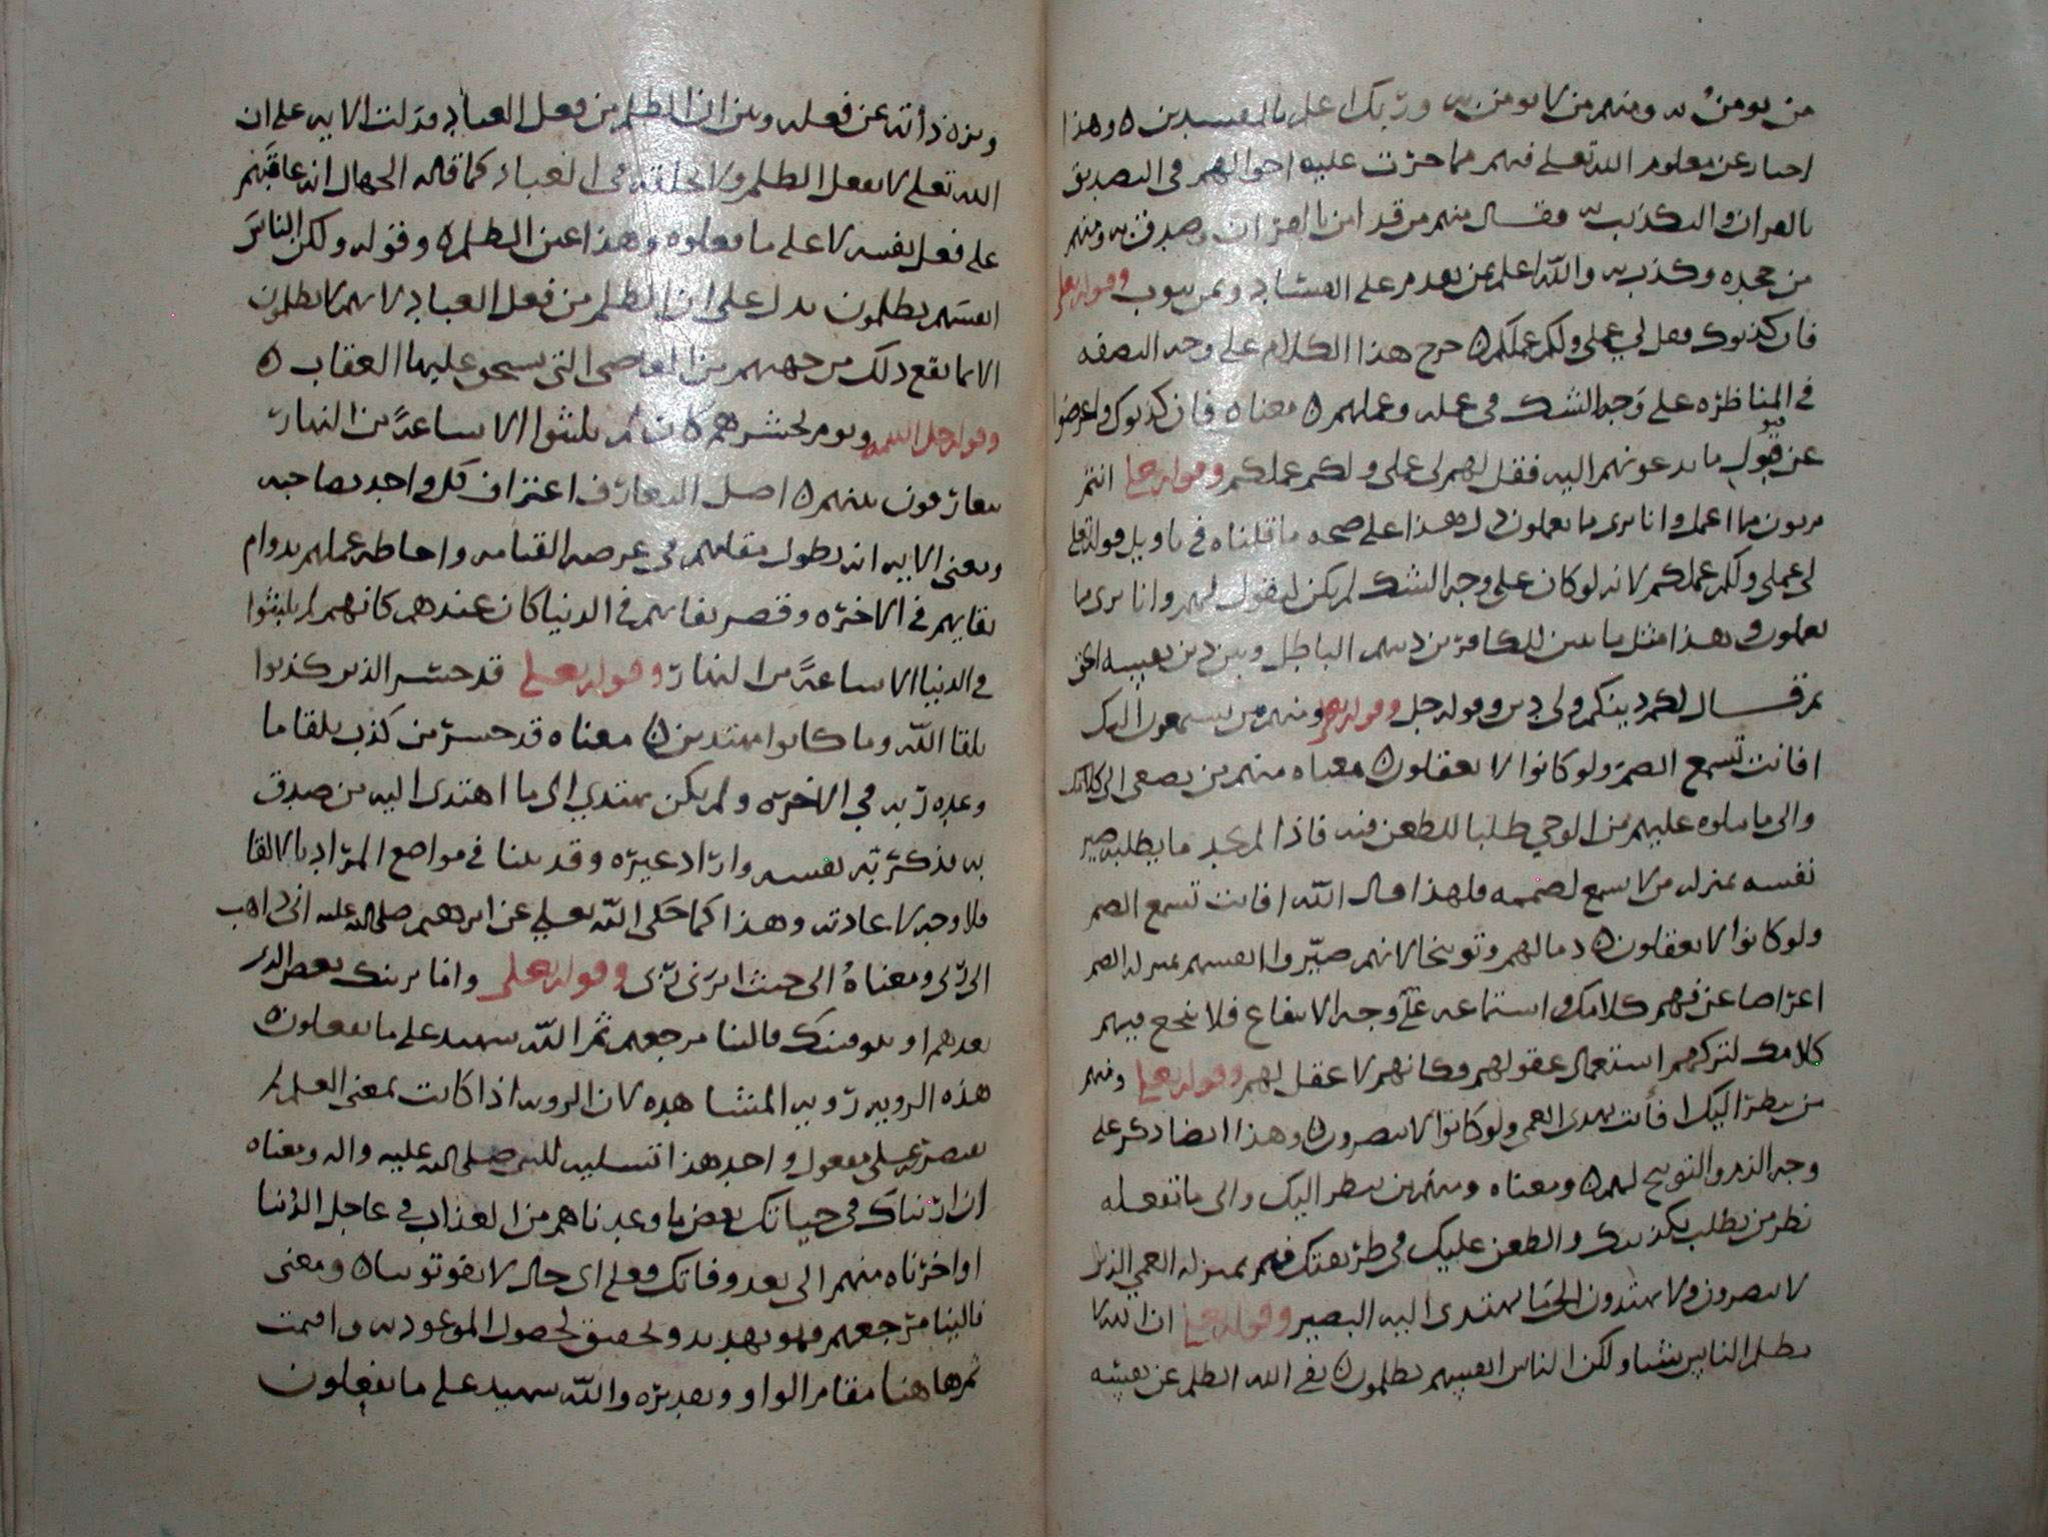 من يومن به ومنهم من لا يومن به وربك اعلم بالمفسدين ه وهذا
اخبار عن معلوم الله تعلى فيهم مما جرت عليه احوالهم في التصديق
بالقران والتكذيب به فقال منهم من قد امن بالقران وصدق به ومنهم
من جحده وكذب به والله اعلم بمن يقدم على الفساد وبمن يتوب وقوله تعلى
فان كذبوك فقل لي عملي ولكم عملكم ه خرج هذا الكلام على وجه النصفه
في المناظره على وجه الشك في عمله وعملهم ه معناه فان كذبوك واعرضوا
عن قبول ما تدعونهم اليه فقل لهم لي عملي ولكم عملكم وقوله تعلى انتم
بريون مما اعمل وانا بري مما تعملون دل هذا على صحه ما قلناه في تاويل قوله تعلى
لي عملي ولكم عملكم لانه لو كان على وجه الشك لم يكن ليقول لهم وانا بري مما
تعملون وهذا مثل ما بين للكافرين دينهم الباطل وبين دين نفسه الحق
ثم قال لكم دينكم ولي دين وقوله جل وقوله تعلى ومنهم من يستمعون اليك
افانت تسمع الصم ولو كانوا لا يعقلون ه معناه منهم من يصغى الى كلامك
والى ما تتلوه عليهم من الوحي طلبا للطعن فيه فاذا لم يجد ما يطلبه صير
نفسه بمنزله من لا يسمع لصممه فلهذا قال الله افانت تسمع الصم
ولو كانوا لا يعقلون ه ذما لهم وتوبيخا لانهم صيروا انفسهم بمنزله الصم
اعراضا عن فهم كلامك واستماعه على وجه الانتفاع فلا ينجع فيهم
كلامك لتركهم استعمال عقولهم وكانهم لا عقل لهم وقوله تعلى ومنهم
من ينظر اليك افانت تهدى العمي ولو كانوا لا يبصرون ه وهذا ايضا ذكر على
وجه الذم والتوبيخ لهم ه ومعناه ومنهم من ينظر اليك والى ما تفعله
نظر من يطلب تكذيبك والطعن عليك في طريقتك فهم بمنزله العمي الذين
لا يبصرون ولا يهتدون الى ما يهتدى اليه البصير وقوله تعلى ان الله لا
يظلم الناس شيا ولكن الناس انفسهم يظلمون ه نفى الله الظلم عن نفسه
ونزه ذاته عن فعله وبين ان الظلم من فعل العباد فدلت الايه على ان
الله تعلى لا يفعل الظلم ولا يخلقه في العباد كما قاله الجهال انه عاقبهم
على فعل نفسه لا على ما فعلوه وهذا عين الظلم ه وقوله ولكن الناس
انفسهم يظلمون يدل على ان الظلم من فعل العباد لانهم لا يظلمون
الا بما يقع ذلك من جهتهم من المعاصى التى يستحق عليها العقاب ه
وقوله جل اسمه ويوم يحشرهم كان لم يلبثوا الا ساعة من النهار
يتعارفون بينهم ه اصل التعارف اعتراف كل واحد بصاحبه
ومعنى الايه انه يطول مقامهم في عرصه القيامه واحاطه عملهم بدوام
بقايهم في الاخره وقصر بقايهم في الدنيا كان عندهم كانهم لم يلبثوا
في الدنيا الا ساعة من النهار وقوله تعلى قد خسر الذين كذبوا
بلقا الله وما كانوا مهتدين ه معناه قد خسر من كذب بلقا ما
وعده ربه في الاخره ولم يكن يهتدي الى ما اهتدى اليه من صدق
به فذكر به نفسه واراد غيره وقد بينا في مواضع المراد بالالقا
فلا وجه لاعادته وهذا كما حكى الله تعلى عن ابرهيم صلى الله عليه اني ذاهب
الى ربي ومعناه الى حيث امرنى ربى وقوله تعلى واما نرينك بعض الذى
نعدهم او نتوفينك فالينا مرجعهم ثم الله شهيد على ما يفعلون ه
هذه الرويه رويه المشاهده لان الرويه اذا كانت بمعنى العلم لم
يقصر على مفعول واحد هذا تسليه للنبى صلى الله عليه واله ومعناه
ان اريناك في حياتك بعض ما وعدناهم من العذاب في عاجل الدنيا
او اخرناه منهم الى بعد وفاتك فعلى اى حال لا يفوتوننا ه ومعنى
فالينا مرجعهم فهو تهديد وتحقيق لحصول الموعود به واقيمت
ثم هاهنا مقام الواو وتقديره والله شهيد على ما يفعلون